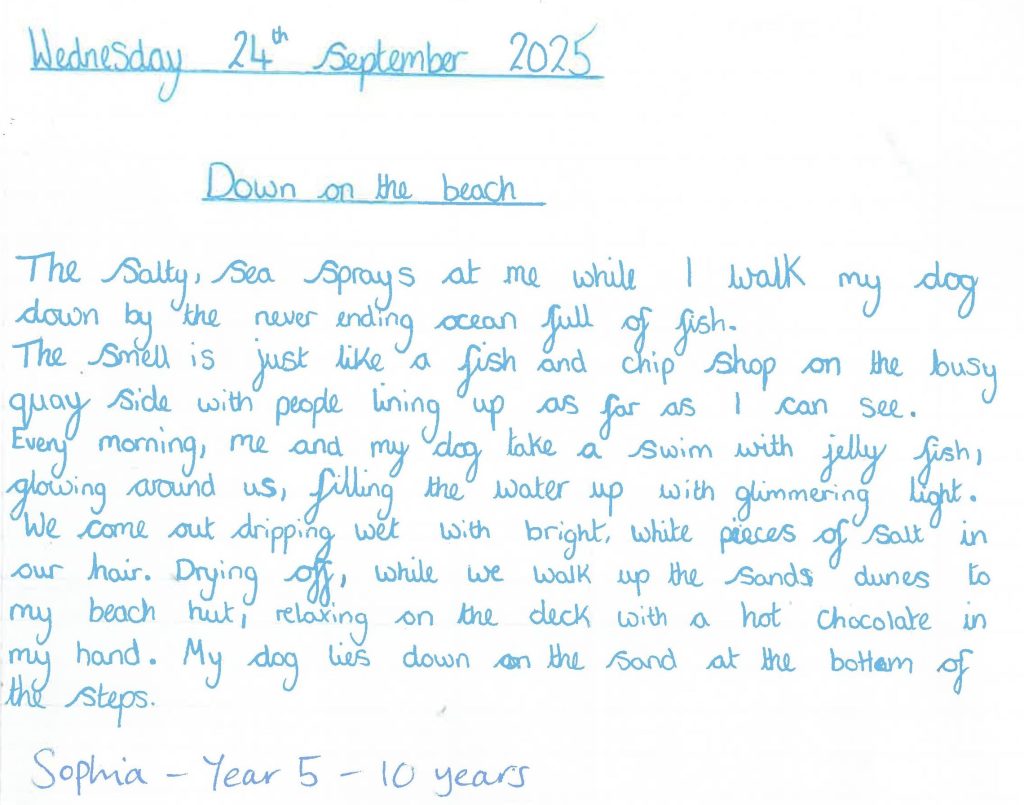 Wednesday 24th September 2025
Down on the beach
The salty, sea sprays at me while I walk my dog
down by the never ending ocean full of fish.
The smell is just like a fish and chip shop on the busy
quay side with people lining up as far as I can see.
Every morning, me and my dog take a swim with jelly fish,
glowing around us, filling the water up with glimmering light.
We come out dripping wet with bright, white pieces of salt in
our hair. Drying off, while we walk up the sands dunes to
my beach hut, relaxing on the deck with a hot chocolate in
my hand. My dog lies down on the sand at the bottom of
the steps.
Sophia - Year 5 - 10 years